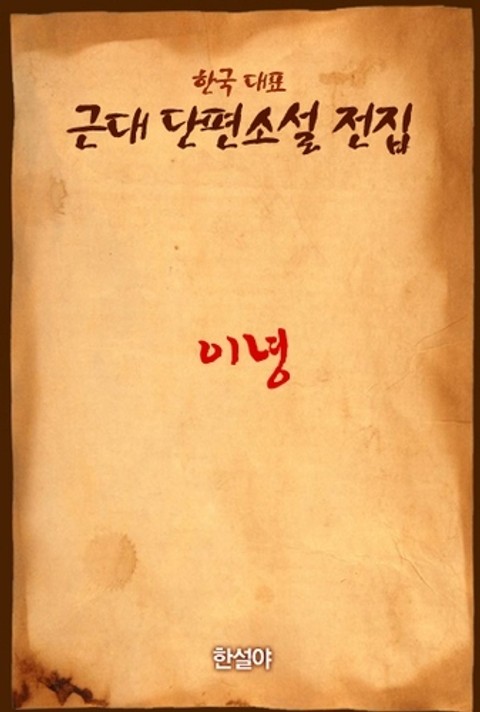 한국 대표
근대 단편소설 전집
이녕
한설야